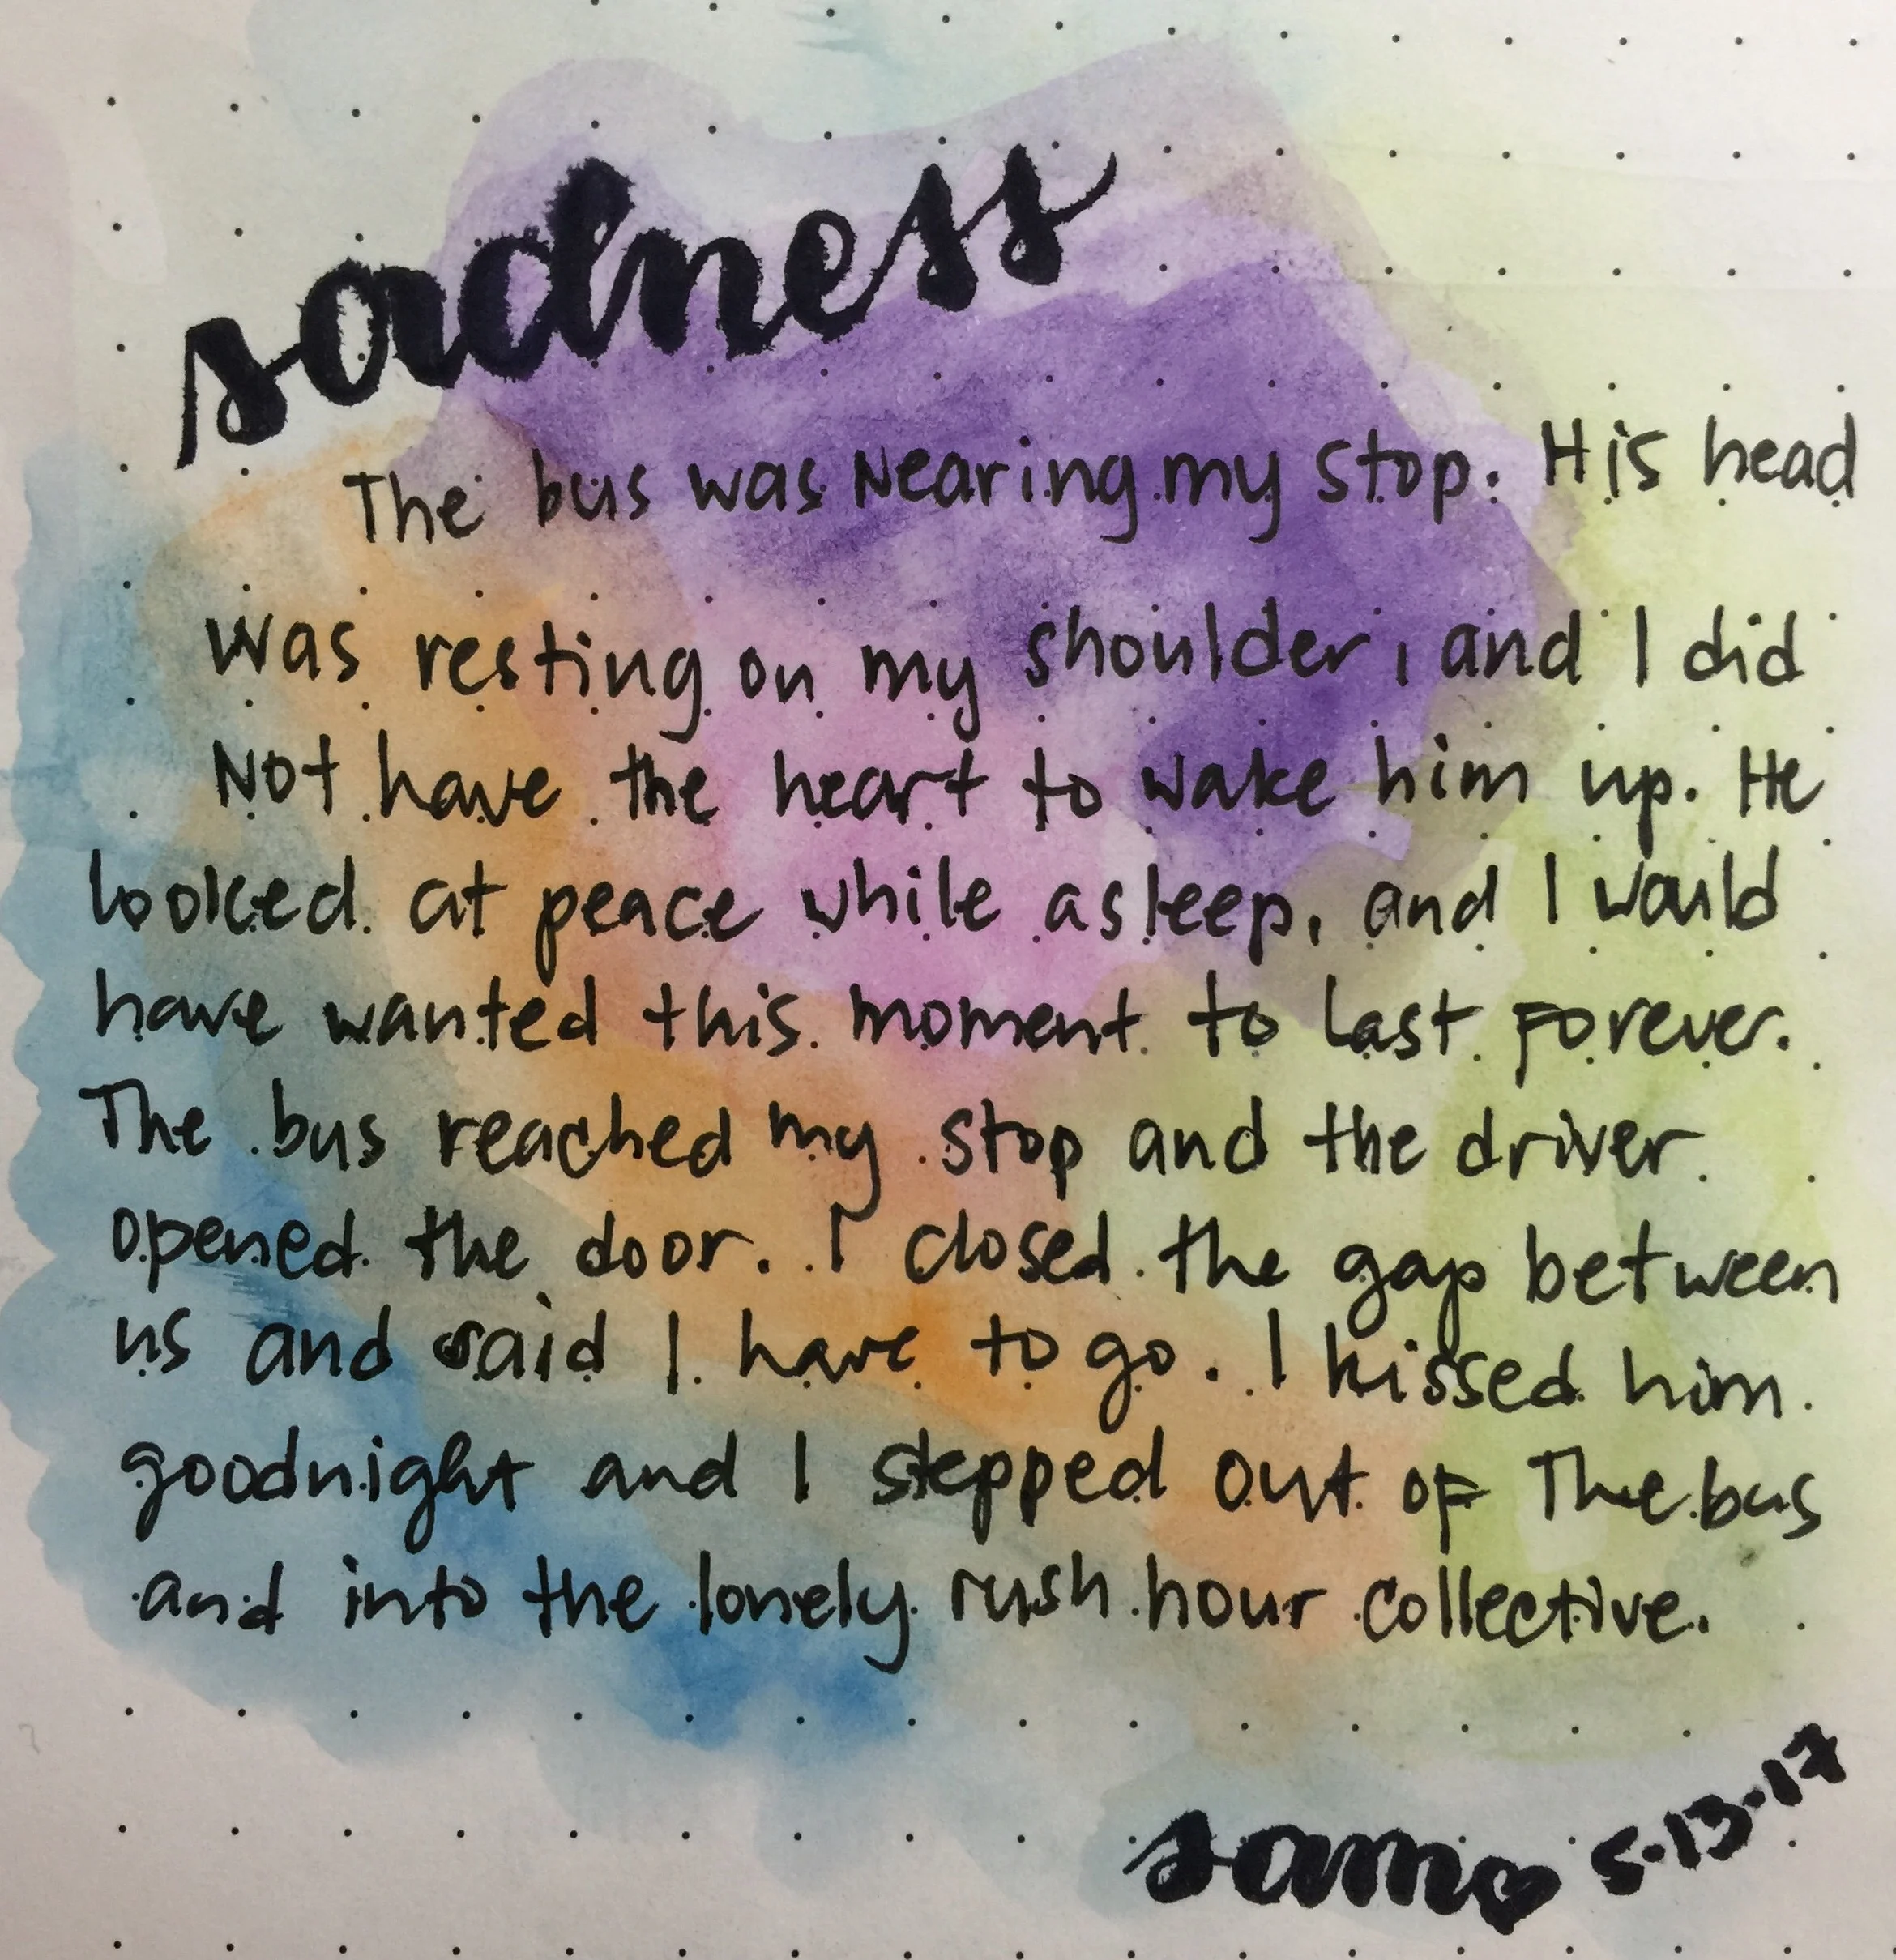 sadness
The bus was Nearing my stop. His head
was resting on my shoulder, and I did
Not have the heart to wake him up. He
looked at peace while asleep, and I would
have wanted this moment to last forever.
The bus reached my stop and the driver
opened the door. I closed the gap between
us and said I have to go. I kissed him
goodnight and I stepped out of The bus
and into the lonely rush hour collective.
sam♥ 5.13.17